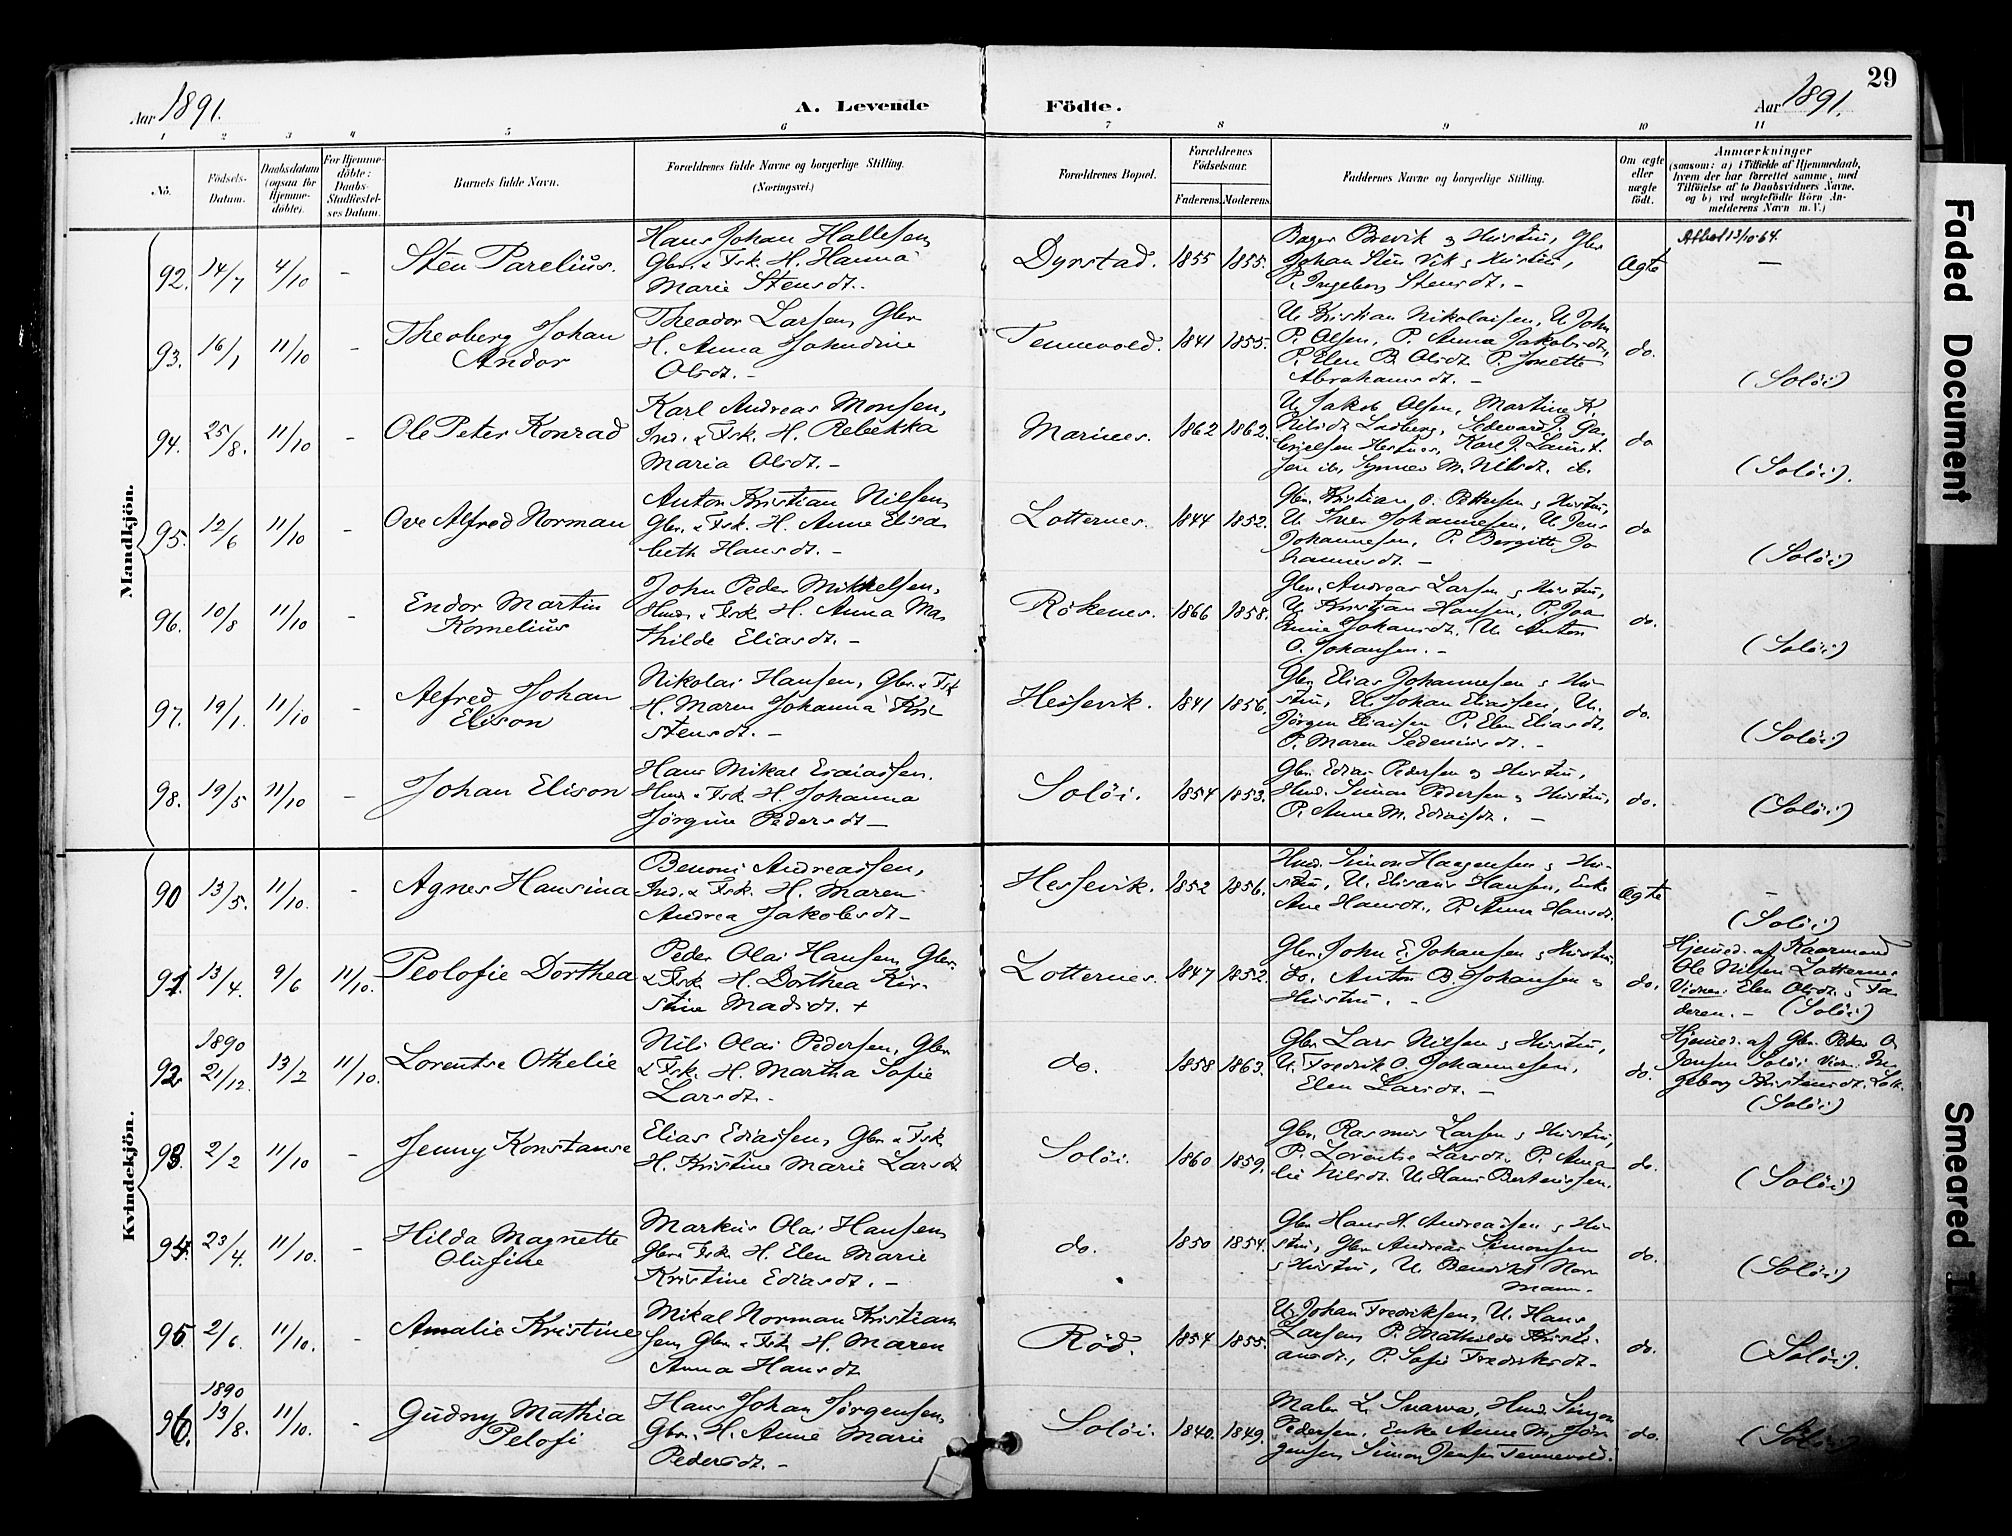 29
Aar 1891.
A. Levende Födte.
Aar 1891.
1 2 3 4 5 6 7 8 9 10 11
No.
Födsels-
Datum.
Daabsdatum
(ogsaa for
Hjemme-
döbte).
For Hjemme-
döbte:
Daabs-
Stadfæstel-
ses Datum.
Barnets fulde Navn.
Forældrenes fulde Navne og borgerlige Stilling.
(Næringsvei.)
Forældrenes Bopæl.
Forældrenes
Födselsaar.
Faderens. Moderens.
Faddernes Navne og borgerlige Stilling.
Om ægte
eller
uægte
födt.
Anmærkninger
(saasom: a) i Tilfælde af Hjemmedaab,
hvem der har forrettet samme, med
Tilföielse af to Daabsvidners Navne,
og b) ved uægtefödte Börn An-
melderens Navn m. V.)
Mandkjön.
92. 14/7 4/10 - Sten Parelius.
Hans Johan Hallesen,
Gbr. & Fsk. H. Hanna
Marie Stensdt. -
Dyrstad. 1855 1855.
Brevik & Hustru, Gbr
Johan Sten Vik & Hustru,
P. Ingeborg Stensdt. -
Ægte
Attest 13/10 64.
-
93. 16/1 11/10 - Theoberg Johan
Andor
Theodor Larsen, Gbr
H. Anna Johndine
Olsdt. -
Tennevold. 1841 1855.
U. Kristian Nikolaisen, U. John
P. Olsen, P. Anna Jakobsdt,
P. Elen B. Olsdt. P. Jonette
Abrahamsdt. -
do.
(Soløi)
94. 25/8. 11/10 - Ole Peter Konrad
Karl Andreas Monsen,
Ind. & Fsk. H. Rebekka
Maria Olsdt. -
Marines. 1862 1862.
U. Jakob Olsen, Martine K.
Nilsdt.
do
(Soløi).
95. 12/6 11/10 - Ove Alfred Norman
Anton Kristian Nilsen,
Gbr. & Fsk. H. Anne Elisa
beth Hansdt. -
Lotternes. 1844 1852.
Gbr. Kristian O. Pettersen & Hustru,
U. Iver Johannesen, U. Jens
Johannesen, P. Bergitte Jo
hannesdt. -
do
(Soløi)
96. 10/8 11/10 - Endor Martin
Kornelius
John Peder Mikkelsen,
Hmd. & Fsk. H. Anna Ma
thilde Eliasdt. -
Rökenes. 1866 1858.
Gbr. Andreas Larsen & Hustru,
U. Kristian Hansen, P.
Johansdt. U. Anton
O. Johansen. -
do.
(Soløi)
97. 19/1. 11/10 - Alfred Johan
Elison
Nikolai Hansen, Gbr. & Fsk
H. Maren Johanna Kri
stensdt. -
Hessevik. 1841 1856.
Gbr. Elias Johannesen & Hu
stru, U. Johan Eliassen, U.
Jörgen Eliassen P. Elen Eliasdt.
P. Maren Sedeniusdt. -
do.
(Soløi)
98. 19/5 11/10 - Johan Elison
Hans Mikal Esaiassen,
Hmd. & Fsk. H. Johanna
Jörgine Pedersdt -
Soløi. 1854 1853.
Gbr. Pedersen & Hustru,
Hmd. Simon Pedersen & Hustru,
P. Anne M. -
do.
(Soløi)
Kvindekjön.
90 13/5. 11/10. - Agnes Hansina
Benoni Andreassen,
Ind. & Fsk. H. Maren
Andrea Jakobsdt -
Hessevik. 1852 1856.
Hmd. Simon Haagensen & Hu-
stru, U. Elisæus Hansen, Enke
Ane Hansdt. P. Anna Hansdt.
Ægte
-
(Soløi)
91. 13/4. 9/6 11/10. Peolofie Dorthea
Peder Olai Hansen, Gbr.
& Fsk. H. Dorthea Kir-
stine Madsdt. +
Lotternes. 1847 1852.
Gbr. John E. Johansen & Hustru
do. Anton B. Johansen &
Hustru. -
do.
Hjemmed. af Kaarmand
Ole Nilsen Lotternes
Vidner: Elen Olsdt. & Fa
deren. - (Soløi)
1890
92. 21/12. 13/2 11/10. Lorentse Othelie
Nils Olai Pedersen, Gbr.
& Fsk. H. Martha Sofie
Larsdt. -
do. 1858 1863.
Gbr. Lars Nilsen & Hustru,
U. Fredrik O. Johannesen,
Elen Larsdt. -
do.
Hjemmed. af Gbr. Peder O
Jensen Soløi Vidn. In
geborg Kristensdt. Lott.
(Soløi)
93. 2/2 11/10 - Jenny Konstanse
Elias Esaiassen, Gbr & Fsk
H. Kristine Marie Larsdt
Soløi. 1860 1859.
Gbr. Rasmus Larsen & Hustru,
P. Lorentse Larsdt. P. Ama
lie Nilsdt. U. Hans Berteussen.
do.
(Soløi)
94. 23/4. 11/10. - Hilda Magnette
Olufine
Markus Olai Hansen,
Gbr & Fsk. H. Elen Marie
Kristine Esiasdt. -
do. 1850 1854.
Gbr Hans H. Andreassen & Hu-
stru, Gbr. Andreas Simonsen
& Hustru, U. Benedikt Nor
mann.
do.
(Soløi)
95 2/6. 11/10. - Amalie Kristine
Mikal Norman Kristian
sen, Gbr. & Fsk H. Maren
Anna Hansdt
Röd. 1854 1855.
U. Johan Fredriksen, U. Hans
Larsen, P. Mathilde Kristi-
ansdt., P. Sofie Fredriksdt -
do.
(Soløi).
1890
96. 13/8. 11/10. - Gudny Mathia
Pelofi
Hans Johan Jörgensen,
Gbr. H. Anne Marie
Pedersdt. -
Soløi. 1840. 1849.
Maler L. Hmd. Simon
Pedersen, Enke Anne M. Jör
gensen Simon Jensen Tennevold.
do.
(Soløi)
Faded Document
Smeared